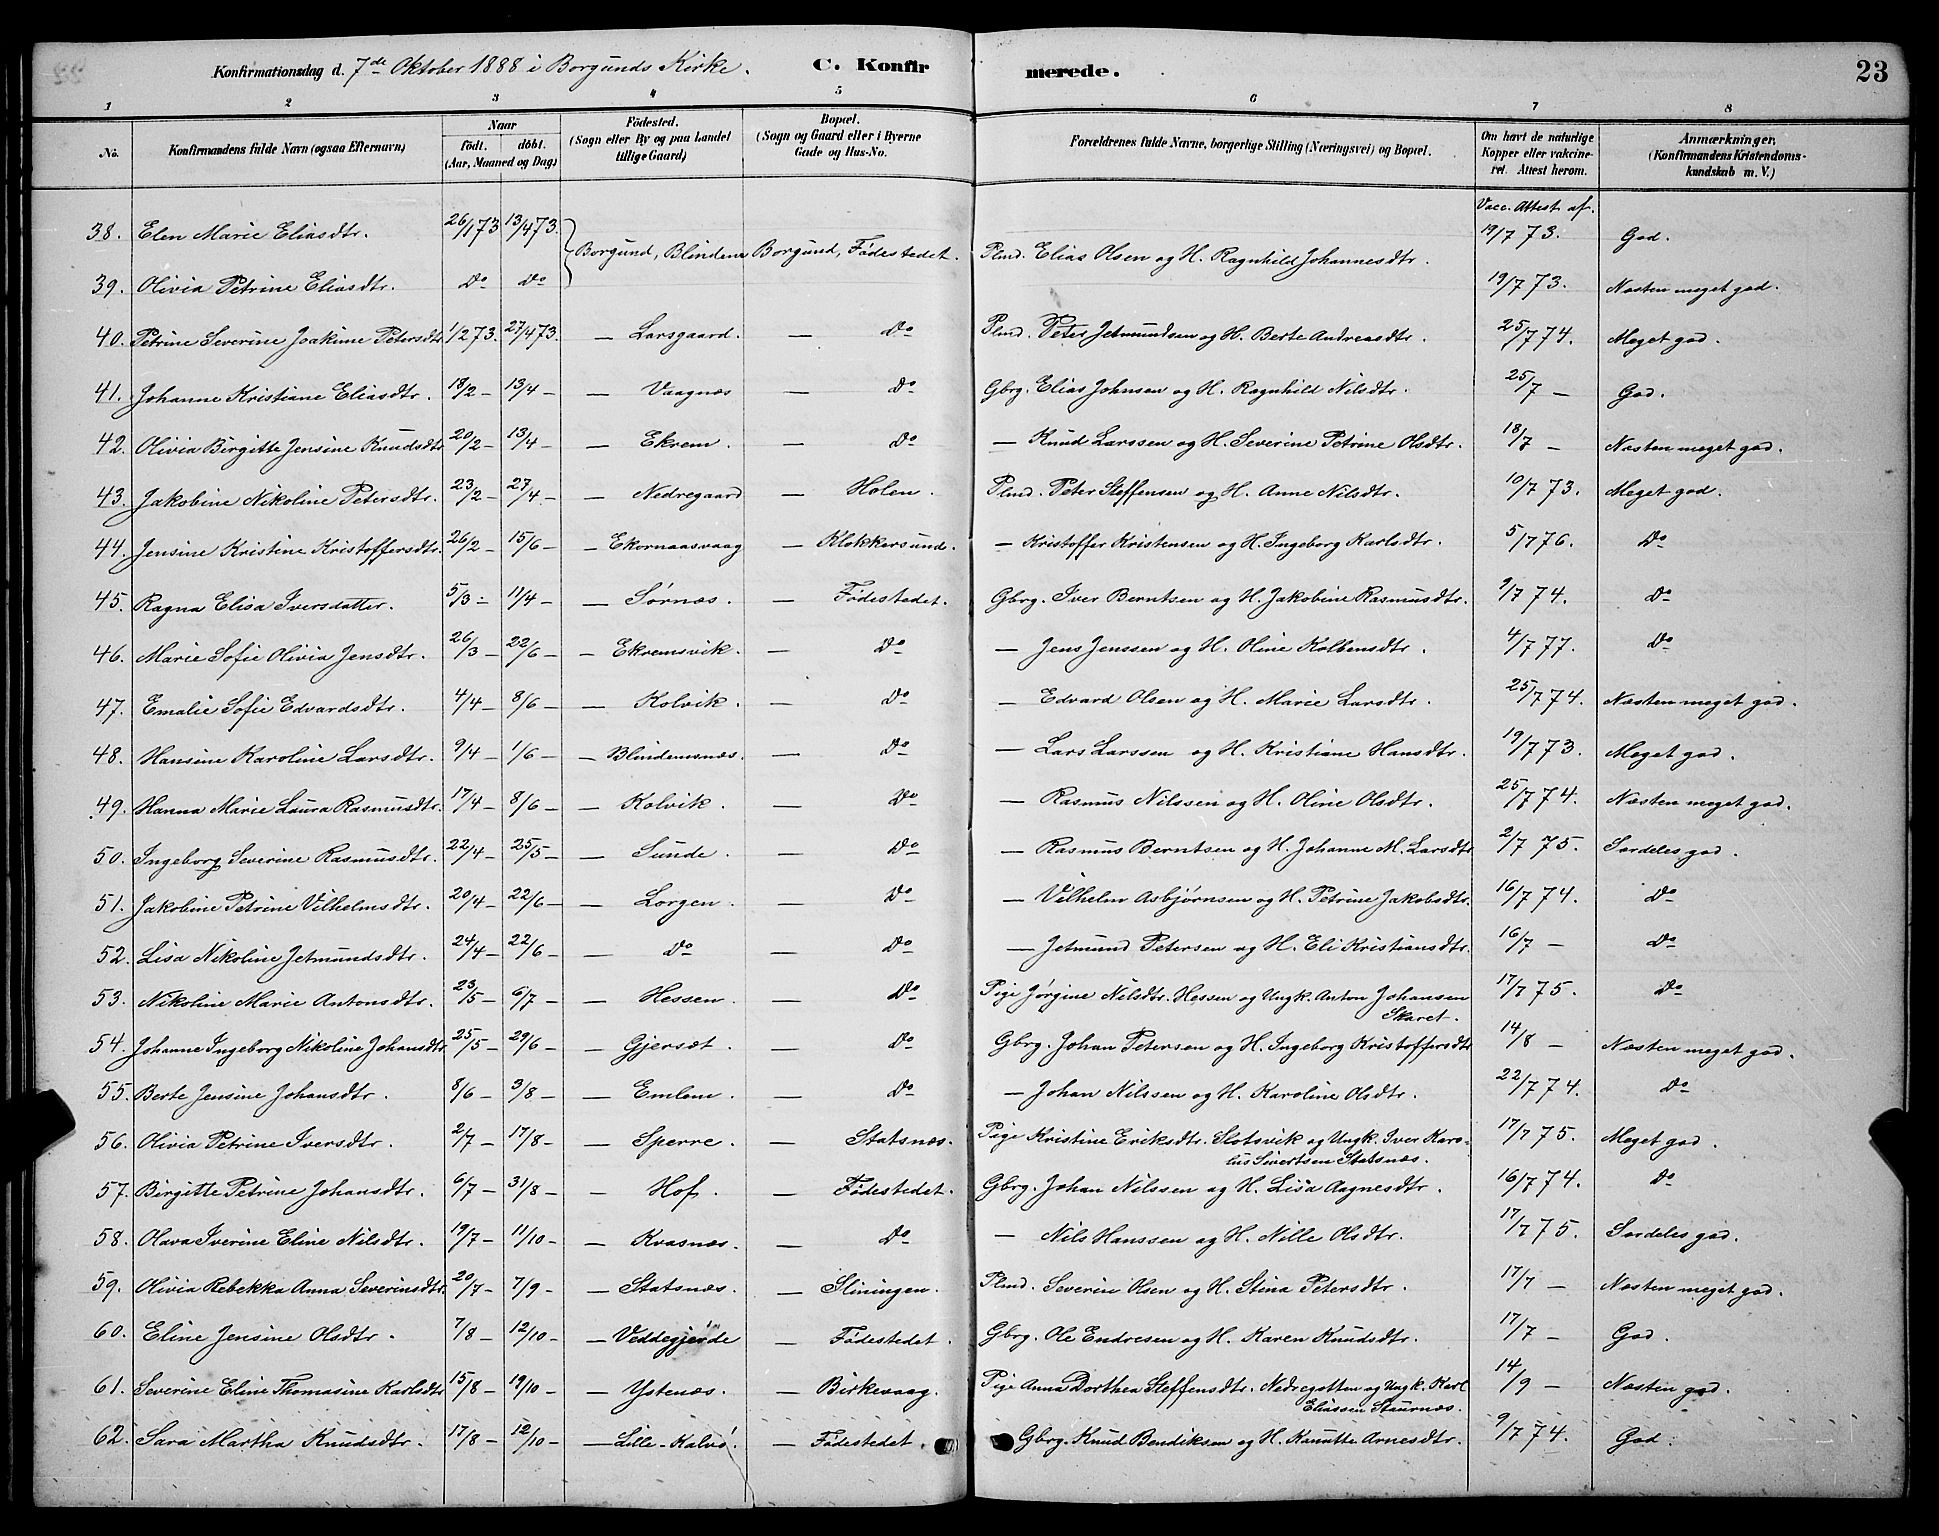 Konfirmationsdag d. 7de Oktober 1888 i Borgunds Kirke. C. Konfirmerede. 23
1 2 3 4 5 6 7 8
No. Konfirmandens fulde Navn (ogsaa Efternavn) Naar födt. döbt. (Aar, Maaned og Dag) Födested. (Sogn eller By og paa Landet tillige Gaard) Bopæl. (Sogn og Gaard eller i Byerne Gade og Hus-No. Forældrenes fulde Navne, borgerlige Stilling (Næringsvei) og Bopæl. Om havt de naturlige Kopper eller vakcineret. Attest herom. Anmærkninger, (Konfirmandens Kristendomskundskab m. V.)
Vacc. Attest af.
38. Elen Marie Eliasdtr. 26/1 73 13/4 73. Borgund, Blindem Borgund, Fødestedet. Plmd. Elias Olsen og H. Ragnhild Johannesdtr. 19/7 73. God.
39. Olivia Petrine Eliasdtr. Do Do 19/7 73. Næsten meget god.
40. Petrine Severine Joakime Petersdtr 1/2 73. 27/4 73. — Larsgaard. — Do Plmd. Peter Jetmundsen og H. Berte Andreasdtr. 25/7 74. Meget god.
41. Johanne Kristiane Eliasdtr. 18/2 — 13/4 — — Vaagnæs — Do Gbrg. Elias Johnsen og H. Ragnhild Nilsdtr. 25/7 — God.
42. Olivia Birgitte Jensine Knudsdtr 20/2 — 13/4 — — Ekrem. — Do — Knud Larssen og H. Severine Petrine Olsdtr. 18/7 — Næsten meget god.
43. Jakobine Nikoline Petersdtr. 23/2 — 27/4 — — Nedregaard — Holen. Plmd. Peter Steffensen og H. Anne Nilsdtr. 10/7 73. Meget god.
44. Jensine Kristine Kristoffersdtr. 26/2 — 15/6 — — Ekornaasvaag — Klokkersund. — Kristoffer Kristensen og H. Ingeborg Karlsdtr. 5/7 76. Do
45. Ragna Elisa Iversdatter. 5/3 — 11/4 — — Sørnæs. — Fødestedet. Gbrg. Iver Berntsen og H. Jakobine Rasmusdtr. 9/7 74. Do
46. Marie Sofie Olivia Jensdtr. 26/3 — 22/6 — — Ekremsvik. — Do — Jens Jenssen og H. Oline Kolbensdtr. 4/7 77. Do
47. Emalie Sofie Edvardsdtr. 4/4 — 8/6 — — Kolvik. — Do — Edvard Olsen og H. Marie Larsdtr. 25/7 74. Næsten meget god.
48. Hansine Karoline Larsdtr. 9/4 — 1/6 — — Blindemsnæs. — Do — Lars Larssen og H. Kristiane Hansdtr. 19/7 73. Meget god.
49. Hanna Marie Laura Rasmusdtr. 17/4 — 8/6 — — Kolvik. — Do — Rasmus Nilssen og H. Oline Olsdtr. 25/7 74. Næsten meget god.
50. Ingeborg Severine Rasmusdtr. 22/4 — 25/5 — — Sunde. — Do — Rasmus Berntsen og H. Johanne M. Larsdtr 2/7 75. Særdeles god.
51. Jakobine Petrine Vilhelmsdtr. 20/4 — 22/6 — — Lorgen. — Do — Vilhelm Asbjørnsen og H. Petrine Jakobsdtr. 16/7 74. Do
52. Lisa Nikoline Jetmundsdtr. 24/4 — 22/6 — — Do — Do — Jetmund Petersen og H. Eli Kristiansdtr. 16/7 — Do
53. Nikoline Marie Antonsdtr. 23/5 — 6/7 — — Hessen. — Do Pige Jørgine Nilsdtr. Hessen og Ungk. Anton Johansen Skaret. 17/7 75. Do
54. Johanne Ingeborg Nikoline Johansdtr 25/5 — 29/6 — — Gjersæt. — Do Gbrg. Johan Petersen og H. Ingeborg Kristoffersdtr 14/8 — Næsten meget god.
55. Berte Jensine Johansdtr. 8/6 — 3/8 — — Emlem. — Do — Johan Nilssen og H. Karoline Olsdtr. 22/7 74. Do
56. Olivia Petrine Iversdtr. 2/7 — 17/8 — — Sperre. — Statsnæs. Pige Kristine Eriksdtr. Slotsvik og Ungk. Iver Karolus Sivertsen Statsnæs. 17/7 75. Meget god.
57. Birgitte Petrine Johansdtr. 6/7 — 31/8 — — Hof. — Fødestedet. Gbrg. Johan Nilssen og H. Lisa Aagnesdtr. 16/7 74. Do
58. Olava Iverine Eline Nilsdtr. 19/7 — 11/10 — — Kvasnæs. — Do — Nils Hanssen og H. Nille Olsdtr. 17/7 75. Særdeles god.
59. Olivia Rebekka Anna Severinsdtr. 20/7 — 7/9 — — Statsnæs. — Slinningen. Plmd. Severin Olsen og H. Stina Petersdtr. 17/7 — Næsten meget god.
60. Eline Jensine Olsdtr. 7/8 — 12/10 — — Veddegjerde — Fødestedet. Gbrg. Ole Endresen og H. Karen Knudsdtr. 17/7 — God.
61. Severine Eline Thomasine Karlsdtr 15/8 — 19/10 — — Ystenæs. — Birkevaag. Pige Anna Dorthea Steffensdtr. Nedregotten og Ungk. Karl Eliassen Staurnæs. 14/9 — Næsten god.
62. Sara Martha Knudsdtr. 17/8 — 12/10 — — Lille-Kalvø. — Fødestedet Gbrg. Knud Bendiksen og H. Kanutte Arnesdtr. 9/7 74. God.